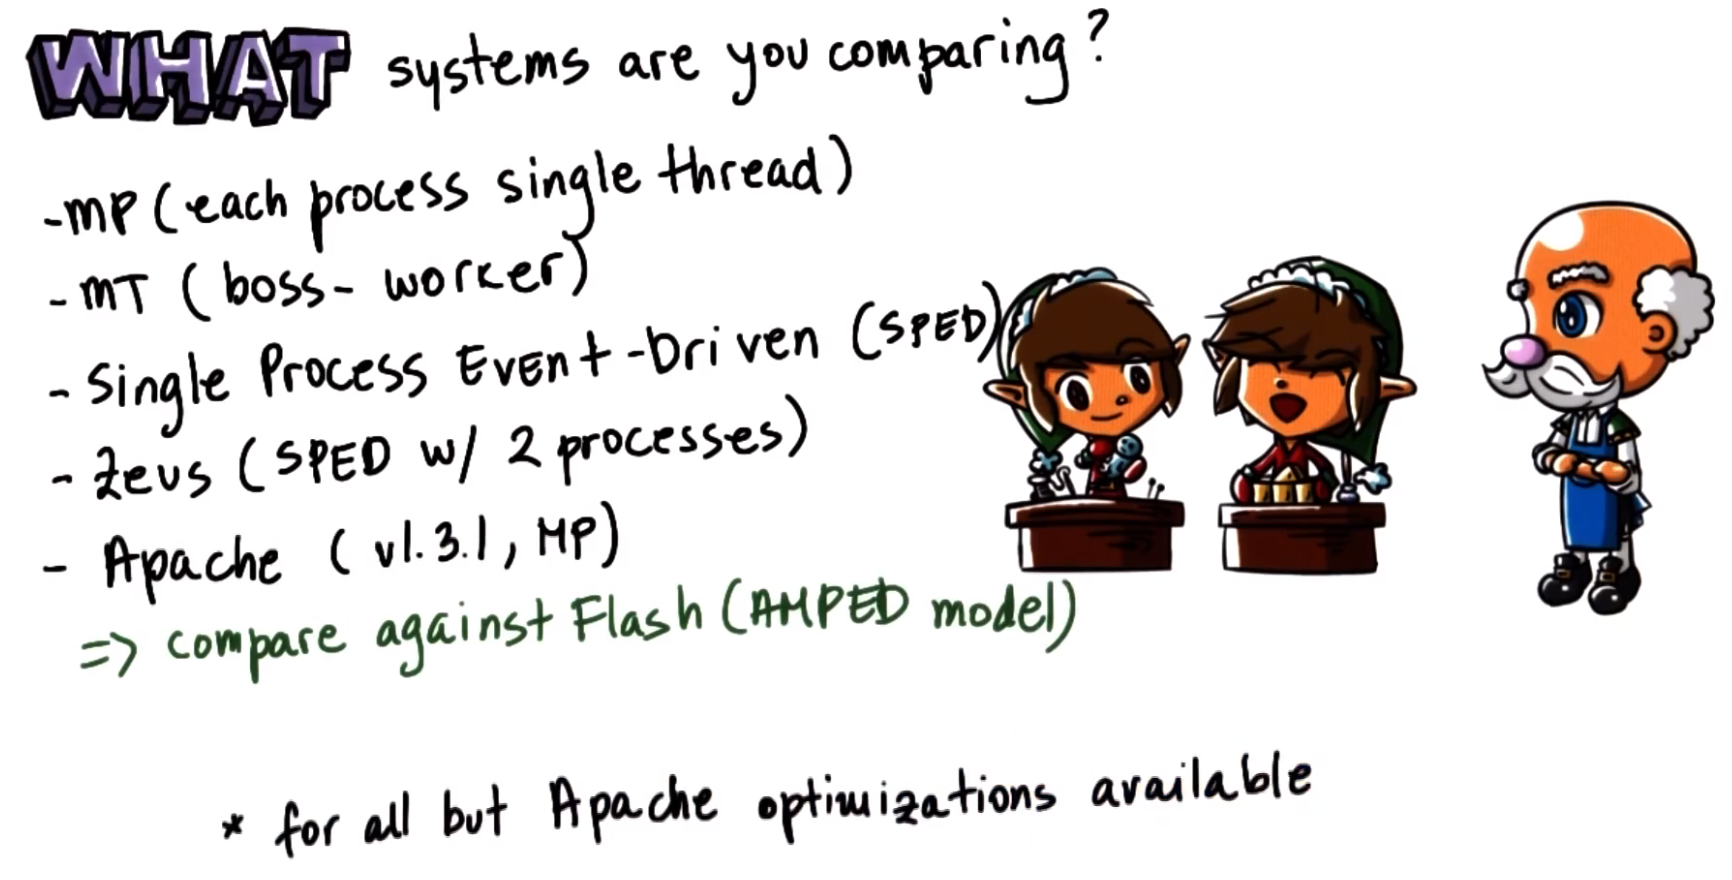 WHAT systems are you comparing?
- MP (each process single thread)
- MT (boss-worker)
- Single Process Event-Driven (SPED)
- Zeus (SPED w/ 2 processes)
- Apache (v1.3.1, MP)
=> compare against Flash (AMPED model)
* for all but Apache optimizations available